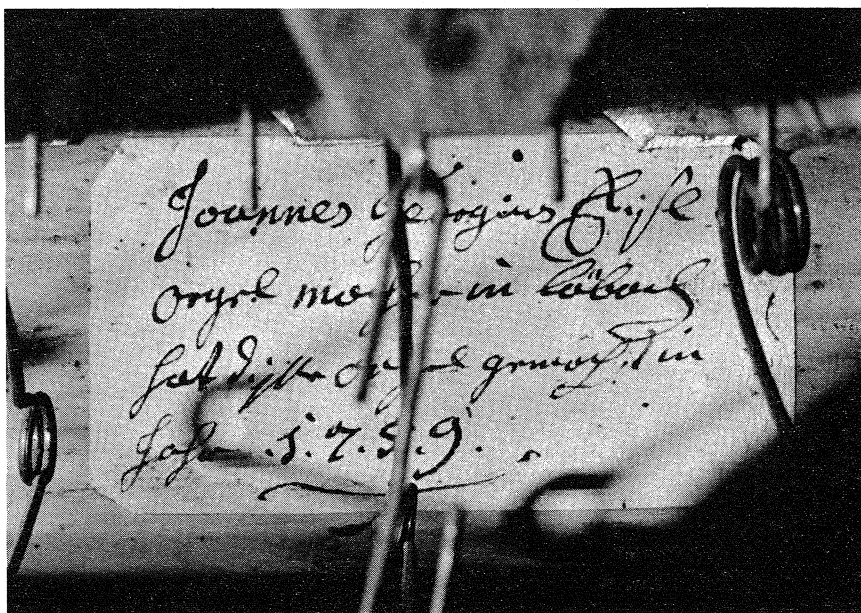 Joannes Georgius
orgel macher in löbach
hat disse orgel gemacht in
Jahr .1.7.5.9.